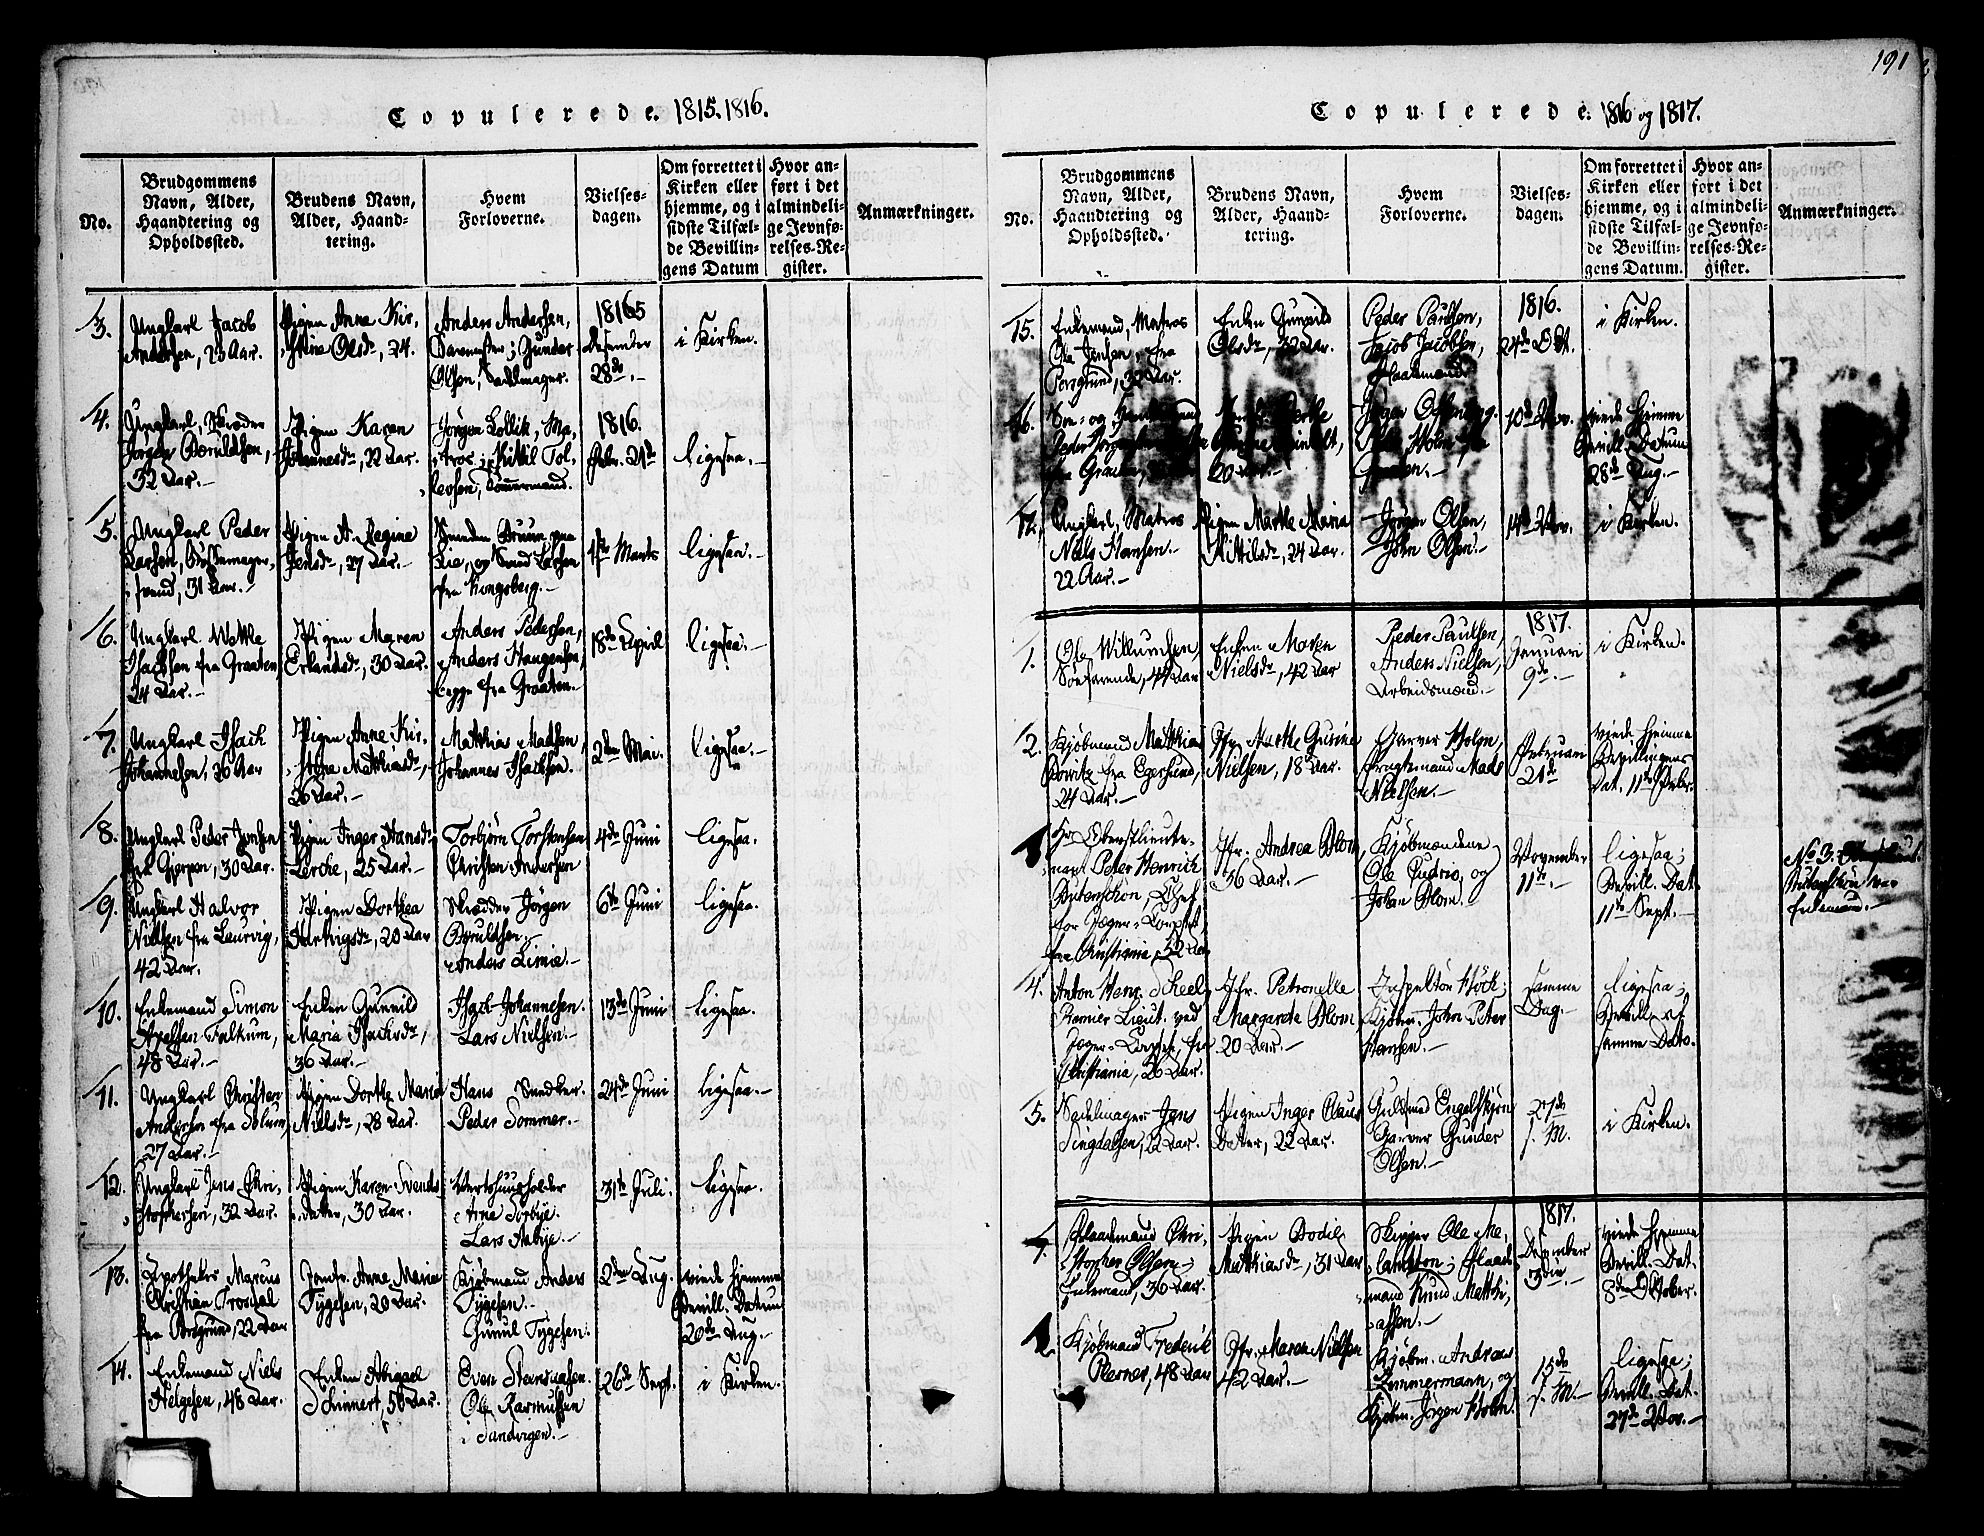 191
Copulerede. 1815. 1816.
No.
Brudgommens
Navn, Alder,
Haandtering og
Opholdssted.
Brudens Navn,
Alder, Haand-
tering.
Hvem
Forloverne.
Vielses-
dagen.
Om forrettet i
Kirken eller
hjemme, og i
sidste Tilfæl-
de Bevillin-
gens Datum
Hvor an-
ført i det
almindeli-
ge Jevnfø-
relses-Re-
gister.
Anmærkninger.
3.
Ungkarl Jacob
Andersen, 23 Aar.
Pigen Anne Kir-
stine Olsdr, 24.
Anders Andersen,
Gunder
Olsen, Sadelmager.
1815
December
28de
i Kirken.
4.
Ungkarl, Skræder
Jörgen Boruldsen,
32 Aar.
Pigen Karen
Johannesdr, 22 Aar.
Jörgen Kollik, Ma-
tros; Kittil Tol-
levsen, Tömmermand.
1816.
Febr. 21de
ligesaa.
5.
Ungkarl Peder
Larsen, Bössemager-
svend, 31 Aar.
Pigen A. Regine
Jensdr, 27 Aar.
Bruun paa
Lie, og Svend Larsen
fra Kongsberg.
1ste Marts
ligesaa.
6.
Ungkarl Wettle
Isachsen fra Graaten,
24 Aar.
Pigen Maren
Erlandsdr, 30 Aar.
Anders Pedersen,
Anders Haugensen,
begge fra Graaten.
18de April
ligesaa.
7.
Ungkarl Isach
Johannesen, 26 Aar
Pigen Anne Kir-
stine Matthiasdr,
26 Aar.
Matthias Madsen,
Johannes Isachsen.
2den Mai.
ligesaa.
8.
Ungkarl Peder Jensen
fra Gjerpen, 30 Aar.
Pigen Inger Hansdr
Lerche, 25 Aar.
Torbjörn Torstensen
Christen Andersen
4de Juni
ligesaa.
9.
Ungkarl Halvor
Nielsen fra Laurvig,
42 Aar.
Pigen Dorthea
Hartvigsdr, 20 Aar
Skrædder Jörgen
Boruldsen,
Anders Limie.
6te Juni
ligesaa.
10.
Enkemand Simon
Axelsen Falkum,
48 Aar.
Enken Gunnild
Maria Isachsdr,
36 Aar.
Isach Johannesen.
Lars Nielsen.
13de Juni
ligesaa.
11.
Ungkarl Christen
Andersen fra Solum,
27 Aar.
Pigen Dorthe Maria
Nielsdr, 28 Aar.
Hans
Peder Sommer.
24de Juni
ligesaa.
12.
Ungkarl Jens Chri-
stophersen, 32 Aar.
Pigen Karen Svends
datter, 30 Aar.
Vertshuusholder
Arne Sorbye.
Lars Aabye.
31te Juli.
ligesaa.
13.
Apotheker Marcus
Christian Trosdal
fra Porsgrund, 22 Aar
Jomfr. Anne Maria
Tygesen, 20 Aar.
Kjöbmand Anders
Tygesen.
Gunul Tygesen.
2den Aug.
viede hjemme
Bevill. Datum
20de Aug.
14.
Enkemand Niels
Helgesen, 48 Aar.
Enken Abigael
Schinnert, 50 Aar.
Even Steensaasen.
Ole Rasmussen
Sandvigen.
26de Sept.
i Kirken.
Copulerede: 1816 og 1817.
No.
Brudgommens
Navn, Alder,
Haandtering og
Opholdssted.
Brudens Navn,
Alder, Haand-
tering.
Hvem
Forloverne.
Vielses-
dagen.
Om forrettet i
Kirken eller
hjemme, og i
sidste Tilfæl-
de Bevillin-
gens Datum.
Hvor an-
ført i det
almindeli-
ge Jevnfø-
relses-Re-
gister.
Anmærkninger.
15.
Enkemand, Matros
Ole Jensen, fra
Porsgrund, 32 Aar.
Enken Gunnild
Olsdr, 32 Aar.
Peder Paulsen,
Jacob Jacobsen,
Flaademænd
1816.
24de Okt.
i Kirken.
16.
fra Graaten,
60 Aar.
Holm, fra
Graaten.
10de Nov.
viede hjemme
Bevill. Datum
28de Aug.
17.
Ungkarl, Matros
Niels Hansen.
22 Aar.
Pigen Marthe Maria
Kittilsdr, 24 Aar.
Jörgen Olsen,
John Olsen.
14de Nov.
i Kirken.
1.
Ole Willumsen,
Söefarende, 44 Aar
Enken Maren
Nielsdr, 42 Aar
Peder Paulsen,
Anders Nielsen,
Arbeidsmænd.
1817.
Januari
9de
i Kirken.
2.
Kjöbmand Matthias
fra Egersund,
24 Aar.
Jfr. Marthe Gurine
Nielsen, 18 Aar.
Garver Holm,
Fragtemand Mads
Nielsen.
Februar
21de
viede hjemme
Bevillingens
Dat. 11te Febr.
3
Hr. Oberstlieute-
nant Peter Henrich
Butenschön, Chef
for Jæger-Corpset,
fra Christiania, 52 Aar
Jfr. Andrea Blom,
36 Aar.
Kjöbmændene
Ole Pudrio, og
Johan Blom.
November
11te
ligesaa;
Bevill. Dat.
11te Sept.
No 3.
Butenschön var
Enkemand.
4.
Anton Henr. Scheel,
Premier Lieut. ved
Jæger-Corpset, fra
Christiania, 26 Aar.
Jfr. Petronelle
Margarete Blom
20 Aar.
Inspektör Höck;
Kjöbm. John Peter
Hansen.
samme
Dag.
ligesaa;
Bevill. af
samme Dato.
5.
Sadelmager Jens
Singdalsen, 22 Aar.
Pigen Inger Claus
Datter, 22 Aar.
Guldsmed Engelskjön
Garver Gunder
Olsen.
27de
s. M.
i Kirken.
Flaademand Chri-
stopher Olsen,
Enkemand, 36 Aar.
Pigen Bodil
Matthiasdr, 31 Aar
Skipper Ole Me-
lantson; Flaade-
mand Knud Matthi-
assen.
1817.
December
3die
viede hjemme
Bevill. Dat.
8de Oktober.
Kjöbmand Frederik
Plesner, 48 Aar
Jfr. Maren Nielsen
42 Aar.
Kjöbm. Andreas
Zimmermann, og
Kjöbm. Jörgen Holm.
15de
s. M.
ligesaa;
Bevill. Dat.
27de Nov.